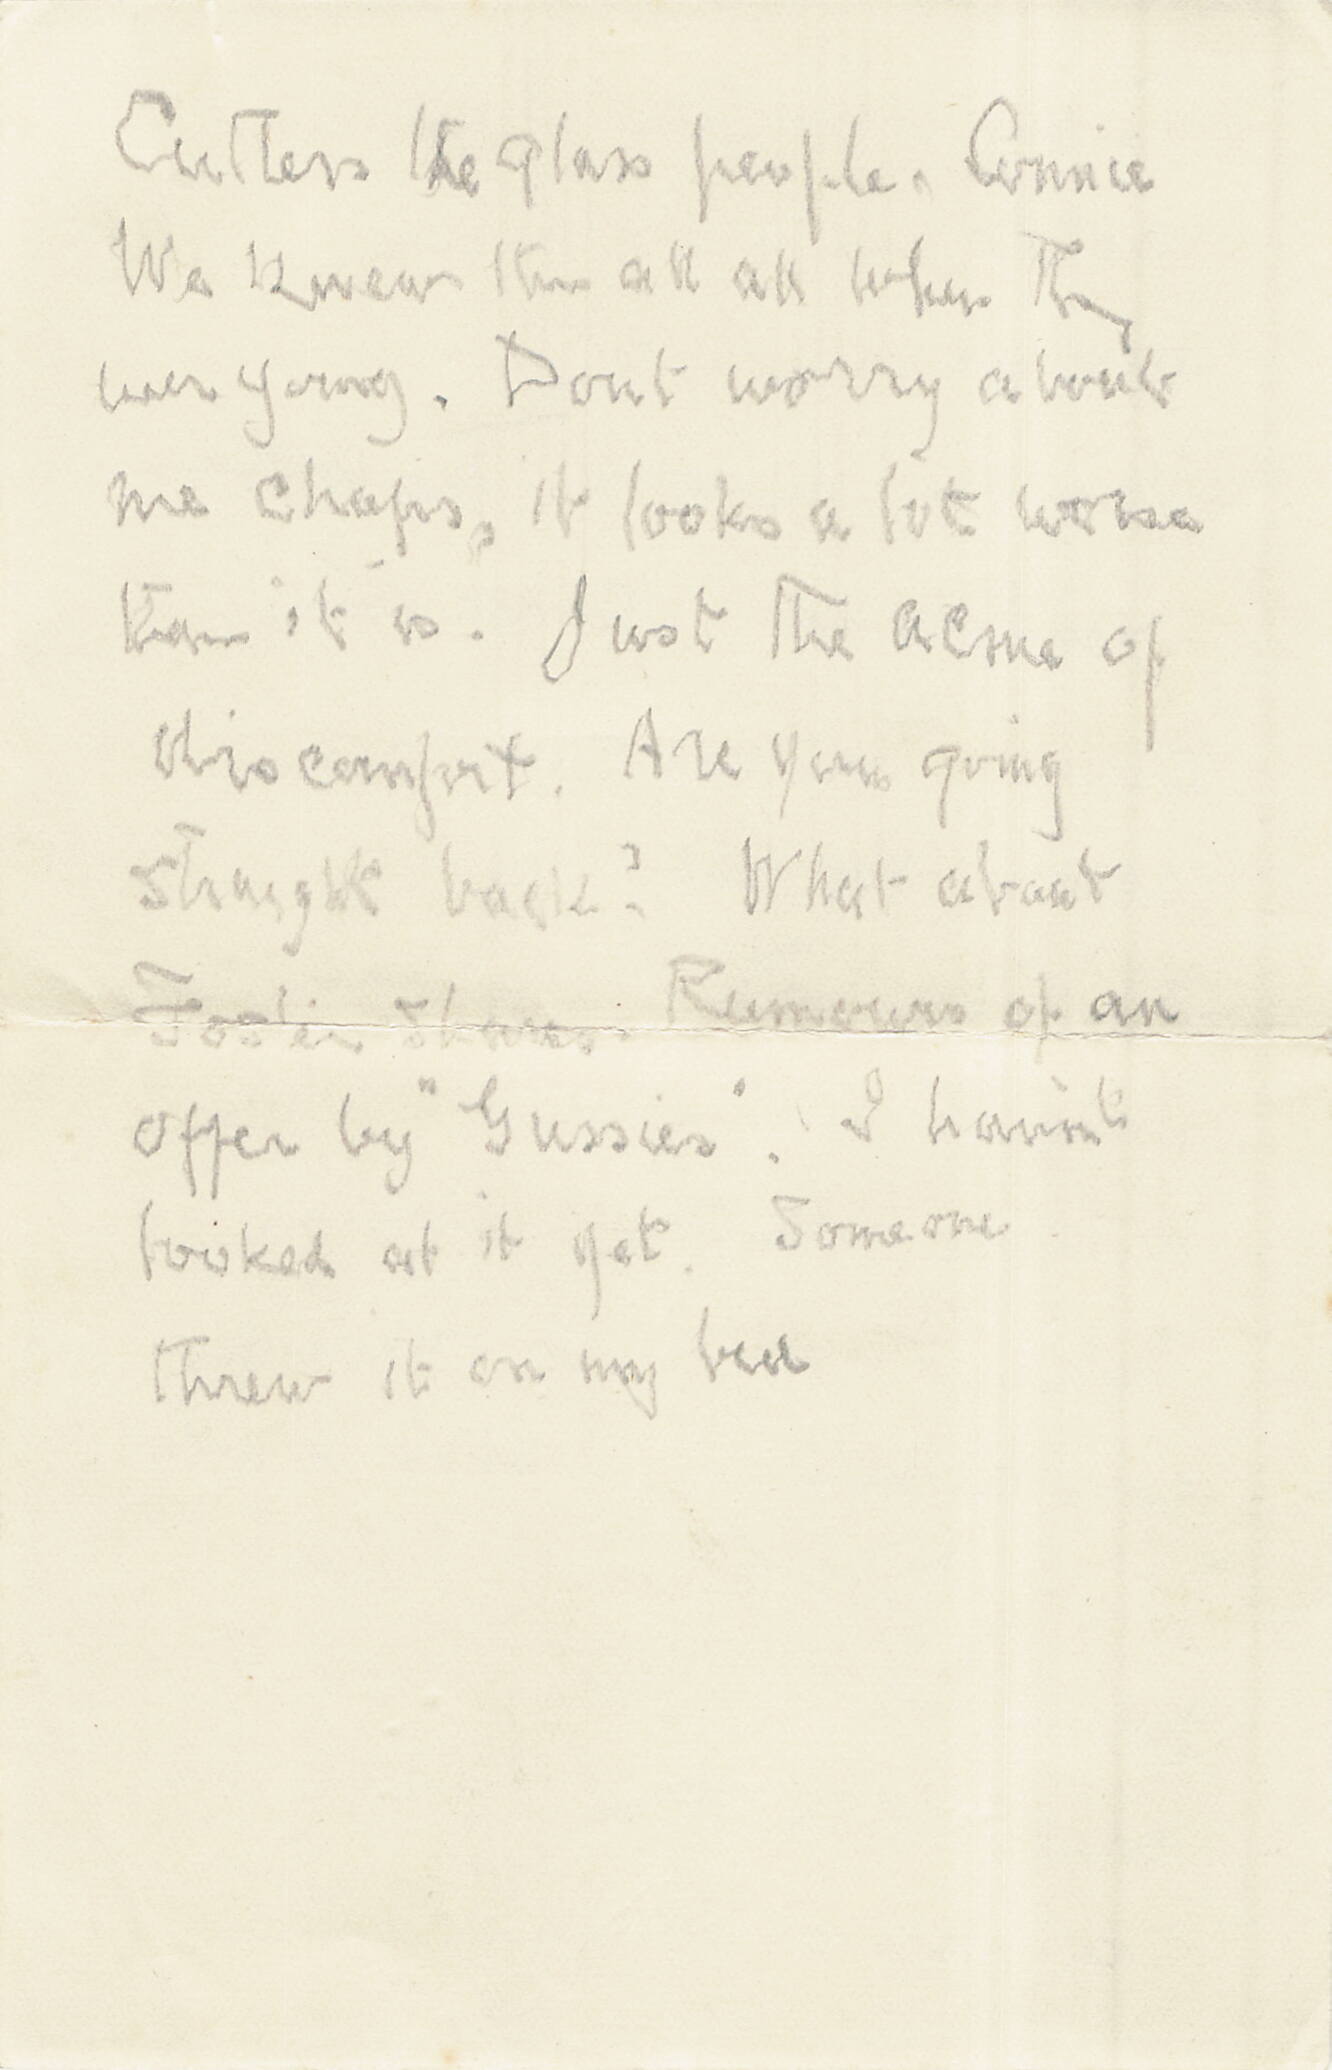 Cutlers the glass people. Connie
We knew them all all when They
were young. Dont worry about
me chaps, it looks a lot worse
than it is. Just The acme of
discomfort. Are you going
straight back? What about
Foster Shares. Rumours of an
offer by "Gussies". I havint
looked at it yet. Someone
threw it on my bed